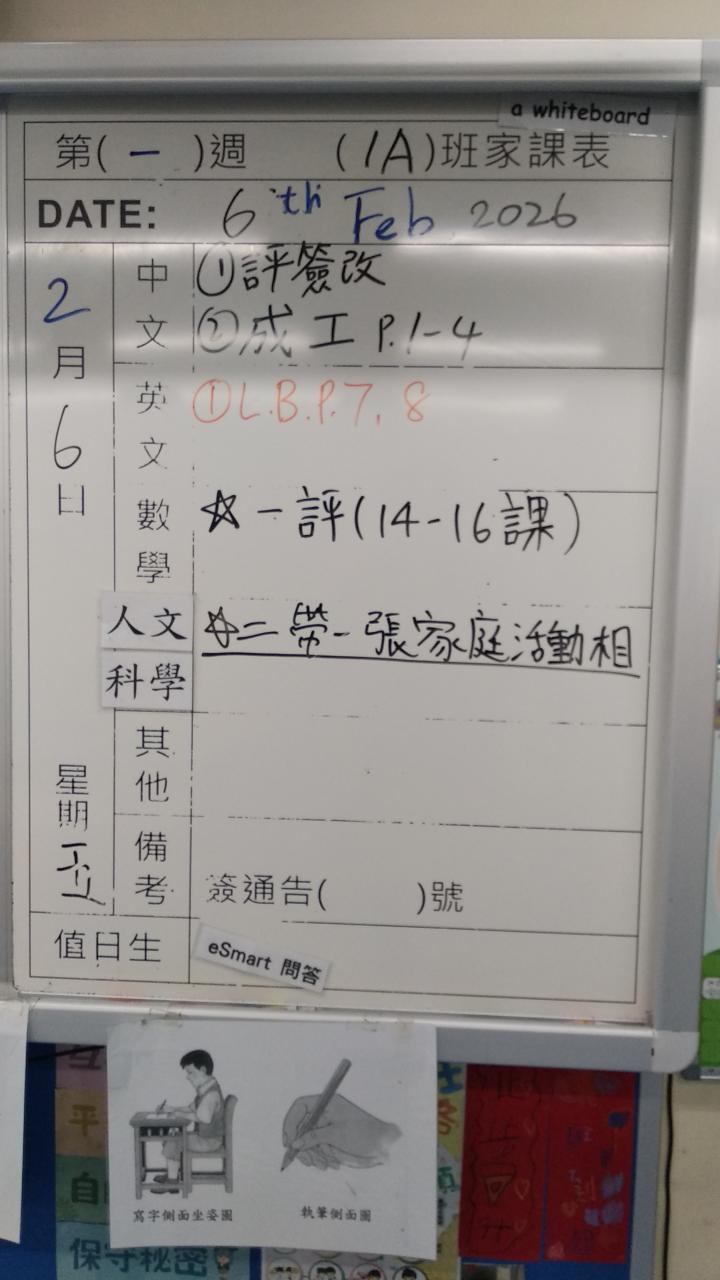 a whiteboard
第(一)週 (1A)班家課表
DATE: 6th Feb 2026
2月6日 星期五
中文 ①評簽改
②成工 P.1-4
英文 ①L.B.P.7, 8
數學 ☆一評(14-16課)
人文 ☆二帶一張家庭活動相
科學
其他
備考 簽通告( )號
值日生 eSmart 問答
寫字側面坐姿圖 執筆側面圖
平
自
保守秘密